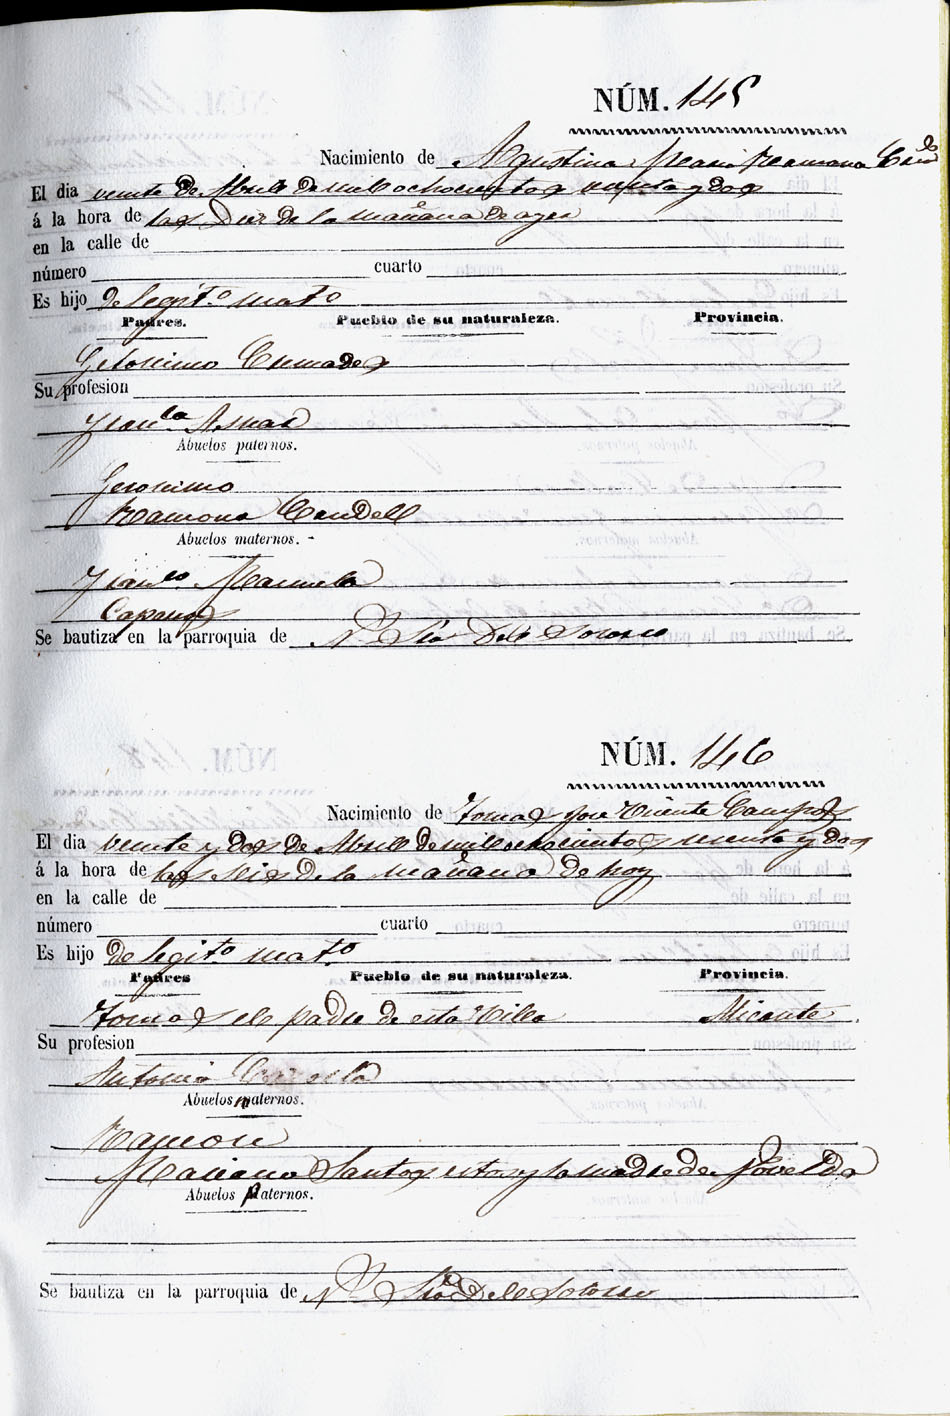 NÚM. 145
Nacimiento de Agustina Maria Ramona
El dia veinte de Abril de mil ochocientos y dos
á la hora de las Diez de la mañana de ayer
en la calle de
número cuarto
Es hijo de legit.o mat.o
Padres. Pueblo de su naturaleza. Provincia.
Geronimo Cremades
Su profesion
Fran.ca Asnar
Abuelos paternos.
Geronimo
Ramona Candell
Abuelos maternos.
Fran.co Manuela
Se bautiza en la parroquia de N. Sra del Socorro
NÚM. 146
Nacimiento de Tomas Jose Vicente Campos
El dia veinte y dos de Abril de mil ochocientos y dos
á la hora de las seis de la mañana de hoy
en la calle de
número cuarto
Es hijo de legit.o mat.o
Padres Pueblo de su naturaleza. Provincia.
Tomas el padre de esta Villa Alicante
Su profesion
Antonia
Abuelos maternos.
Ramon
Mariana Santos estos y la madre de Novelda
Abuelos paternos.
Se bautiza en la parroquia de N. Sra del Socorro